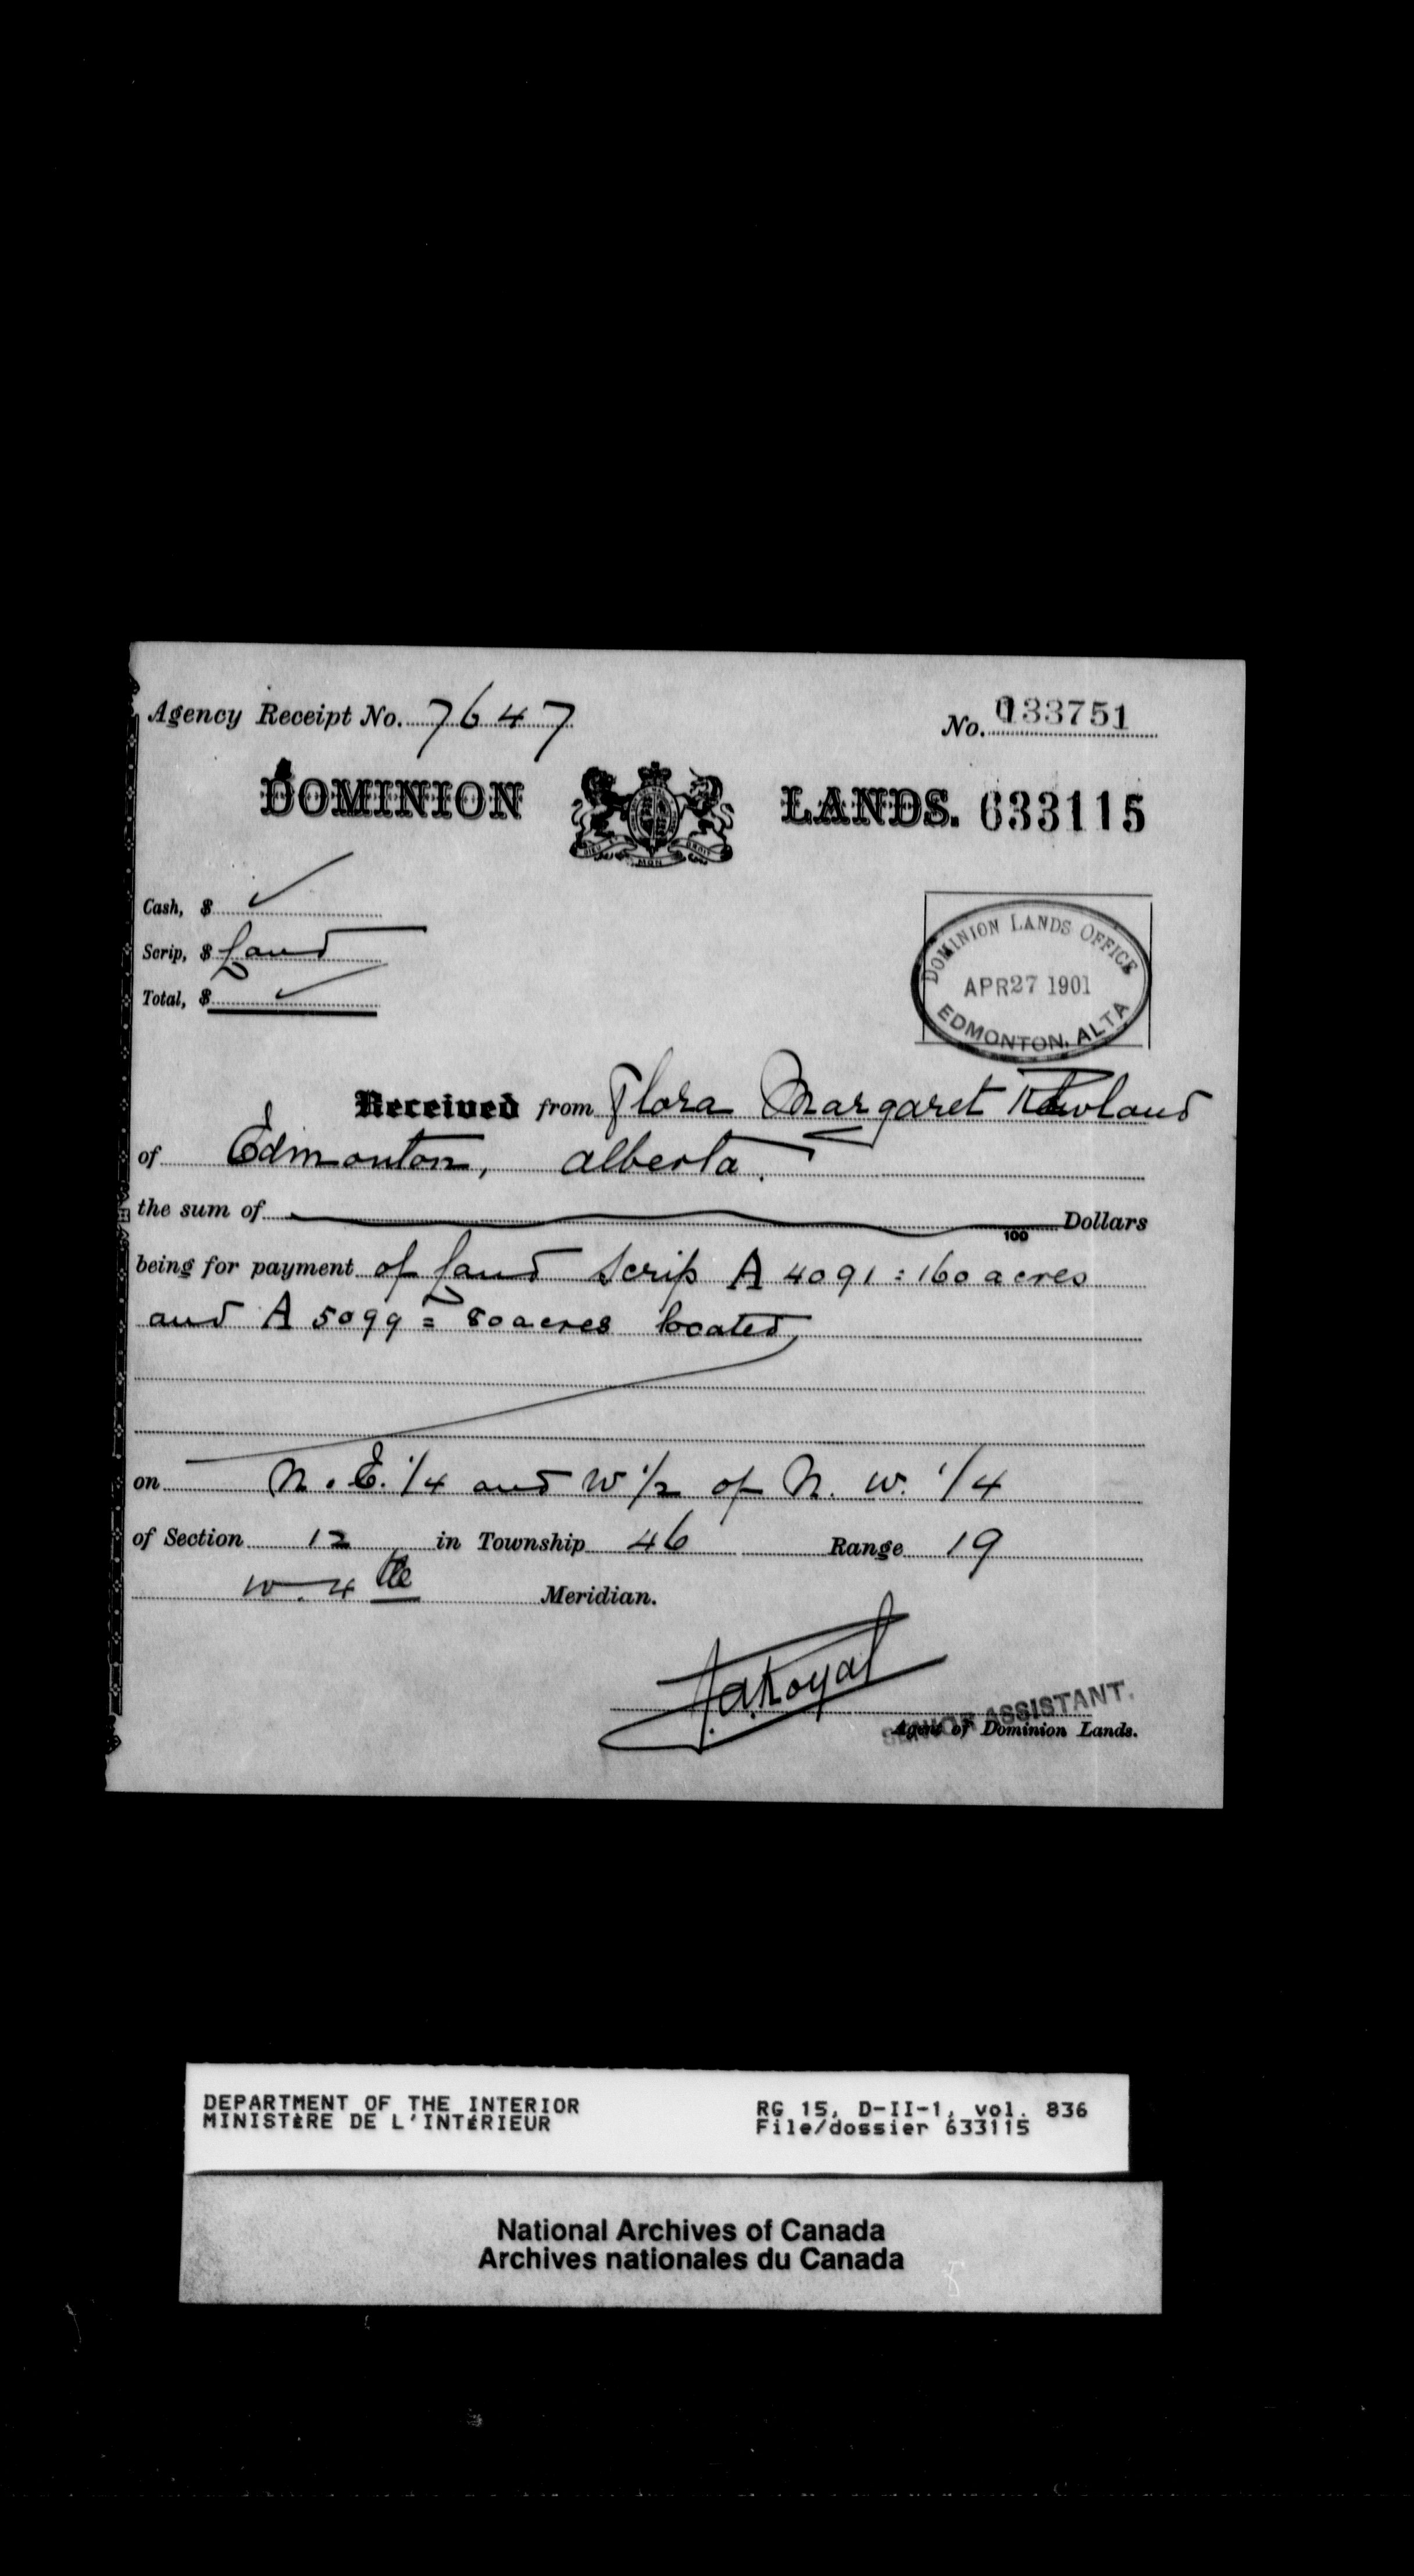 Agency Receipt No. 7647 No. 133751
DOMINION LANDS. 633115
Cash, $
Scrip, $ Land
Total, $
DOMINION LANDS OFFICE
APR 27 1901
EDMONTON, ALTA
Received from Flora Margaret Rowland
of Edmonton, Alberta.
the sum of 100 Dollars
being for payment of Land Scrip A 4091 = 160 acres
and A 5099 = 80 acres located
on N. E. 1/4 and W 1/2 of N. W. 1/4
of Section 12 in Township 46 Range 19
W. 4th Meridian.
J.A. Royal
ASSISTANT.
Agent of Dominion Lands.
DEPARTMENT OF THE INTERIOR RG 15, D-II-1, vol. 836
MINISTÈRE DE L'INTÉRIEUR File/dossier 633115
National Archives of Canada
Archives nationales du Canada